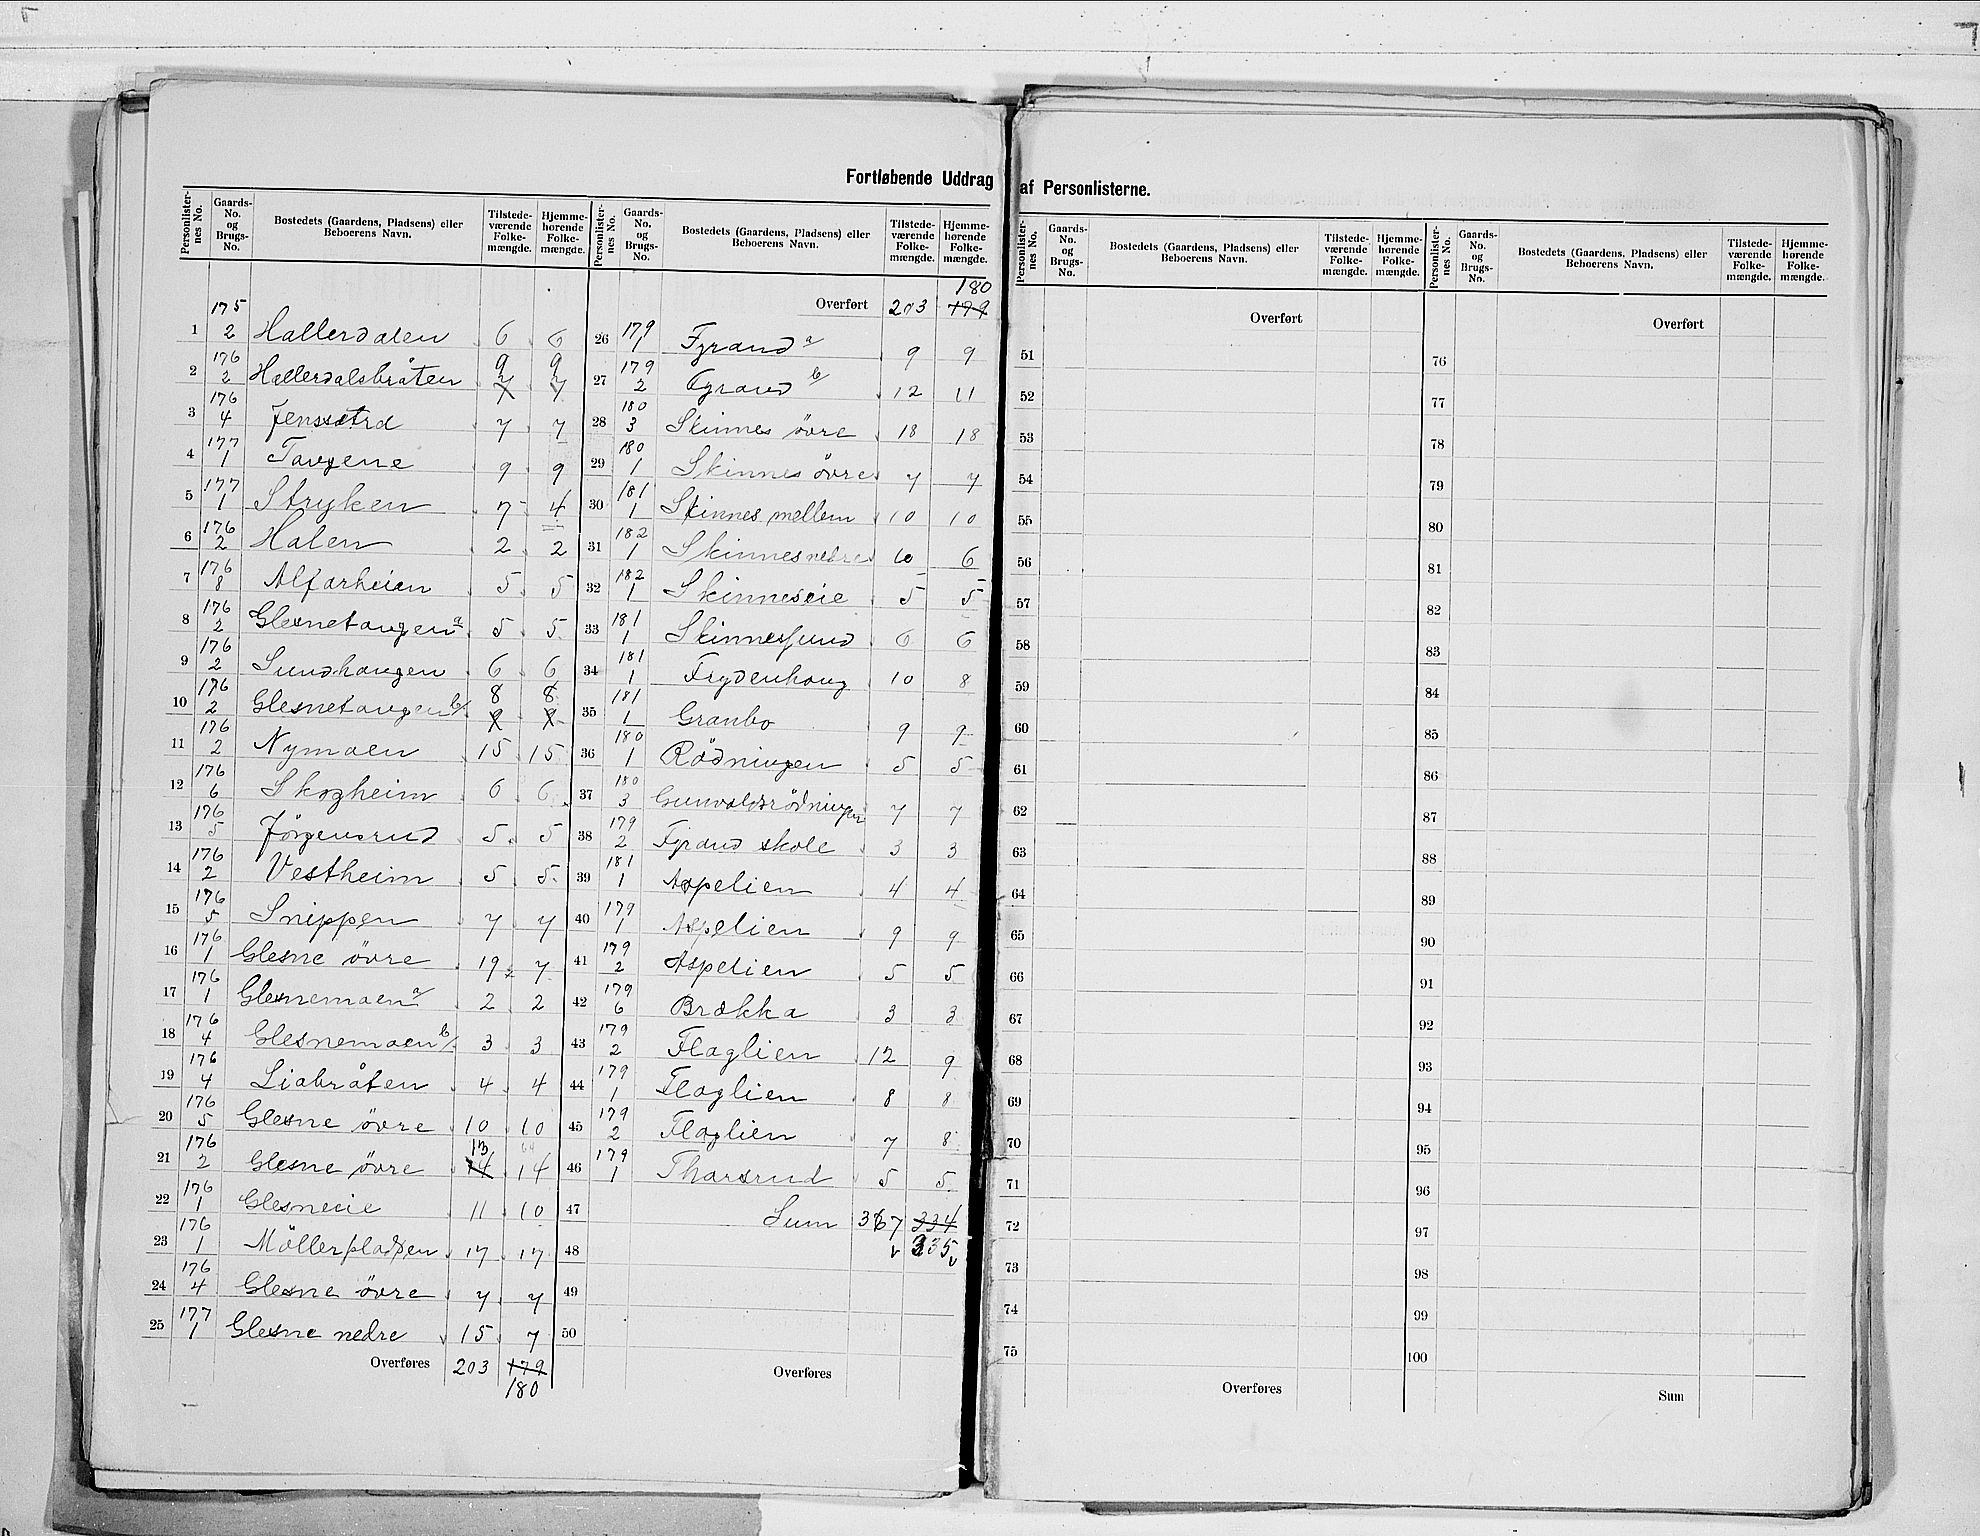 Fortløbende Uddrag af Personlisterne.
Personlisternes No. | Gaards-No. og Brugs-No. | Bostedets (Gaardens, Pladsens) eller Beboerens Navn. | Tilstedeværende Folkemængde. | Hjemmehørende Folkemængde.
1 | 175/2 | Hallerdalen | 6 | 6
2 | 176/2 | Hallerdalsbråten | 9 7 | 9 7
3 | 176/4 | Jenssætrd | 7 | 7
4 | 177/1 | Tangene | 9 | 9
5 | 177/1 | Stryken | 7 | 4
6 | 176/2 | Halen | 2 | 2
7 | 176/8 | Alfarheien | 5 | 5
8 | 176/2 | Glesnetangen a | 5 | 5
9 | 176/2 | Sundhaugen | 6 | 6
10 | 176/2 | Glesnetangen b/ | 8 9 | 8 9
11 | 176/2 | Nymoen | 15 | 15
12 | 176/6 | Skogheim | 6 | 6
13 | 176/5 | Jörgensrud | 5 | 5
14 | 176/2 | Vestheim | 5 | 5
15 | 176/5 | Snippen | 7 | 7
16 | 176/1 | Glesne övre | 19 | 7
17 | 176/1 | Glesnemoen a/ | 2 | 2
18 | 176/4 | Glesnemoen b/ | 3 | 3
19 | 176/4 | Liabråten | 4 | 4
20 | 176/5 | Glesne övre | 10 | 10
21 | 176/2 | Glesne övre | 13 14 | 14
22 | 176/1 | Glesneeie | 11 | 10
23 | 176/1 | Möllerpladsen | 17 | 17
24 | 176/4 | Glesne övre | 7 | 7
25 | 177/1 | Glesne nedre | 15 | 7
Overføres 203 179
180
Personlisternes No. | Gaards-No. og Brugs-No. | Bostedets (Gaardens, Pladsens) eller Beboerens Navn. | Tilstedeværende Folkemængde. | Hjemmehørende Folkemængde.
180
Overført 203 179
26 | 179/1 | Fyrand a | 9 | 9
27 | 179/2 | Fyrand b/ | 12 | 11
28 | 180/3 | Skinnes övre | 18 | 18
29 | 180/1 | Skinnes övre | 7 | 7
30 | 181/1 | Skinnes mellem | 10 | 10
31 | 182/1 | Skinnes nedre | 10 | 6
32 | 182/1 | Skinneseie | 5 | 5
33 | 181/1 | Skinnessund | 6 | 6
34 | 181/1 | Frydenhaug | 10 | 8
35 | 181/1 | Granbo | 9 | 9
36 | 180/1 | Rödningen | 5 | 5
37 | 180/3 | Gunvaldsrödningen | 7 | 7
38 | 179/2 | Fyrand skole | 3 | 3
39 | 181/1 | Aspelien | 4 | 4
40 | 179/1 | Aspelien | 9 | 9
41 | 179/2 | Aspelien | 5 | 5
42 | 179/6 | Brækka | 3 | 3
43 | 179/2 | Flaglien | 12 | 9
44 | 179/1 | Flaglien | 8 | 8
45 | 179/2 | Flaglien | 7 | 8
46 | 179/1 | Thorsrud | 5 | 5
47 Sum 367 334
48 335
49
50
Overføres
Personlisternes No. | Gaards-No. og Brugs-No. | Bostedets (Gaardens, Pladsens) eller Beboerens Navn. | Tilstedeværende Folkemængde. | Hjemmehørende Folkemængde.
Overført
51
52
53
54
55
56
57
58
59
60
61
62
63
64
65
66
67
68
69
70
71
72
73
74
75
Overføres
Personlisternes No. | Gaards-No. og Brugs-No. | Bostedets (Gaardens, Pladsens) eller Beboerens Navn. | Tilstedeværende Folkemængde. | Hjemmehørende Folkemængde.
Overført
76
77
78
79
80
81
82
83
84
85
86
87
88
89
90
91
92
93
94
95
96
97
98
99
100
Sum